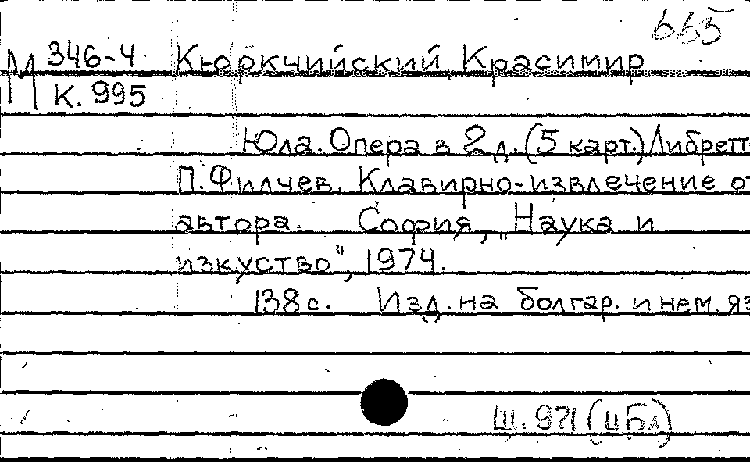 665
М 346-4 Кюркчийский, Красимир
К. 995
Юла. Опера в 2 д. (5 карт.) Либретт
П. Филчев. Клавирно-извлечение от
автора. София, „Наука и
изкуство", 1974.
138 с. Изд. на болгар. и нем. яз
Щ. 971 (цБл)